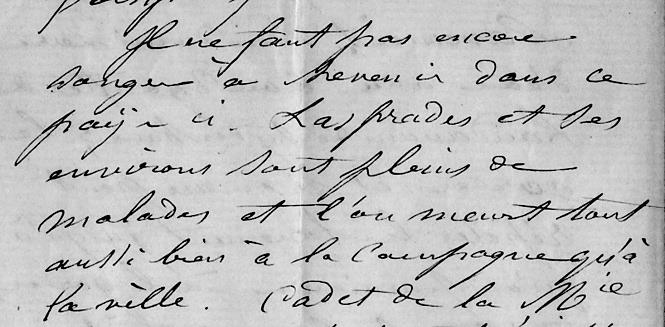 Il ne faut pas encore
songer à revenir dans ce
pays ci. Las prades et ses
environs sont pleins de
malades et l'on meurt tout
aussi bien à la campagne qu'à
la ville. Cadet de la Mie